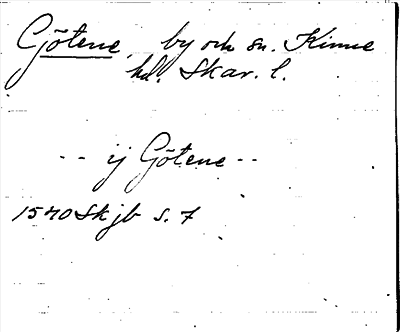 Götene, by och sn. Kinne
hd. Skar. l.
-- ij Götene --
1540 Skjb s. 7